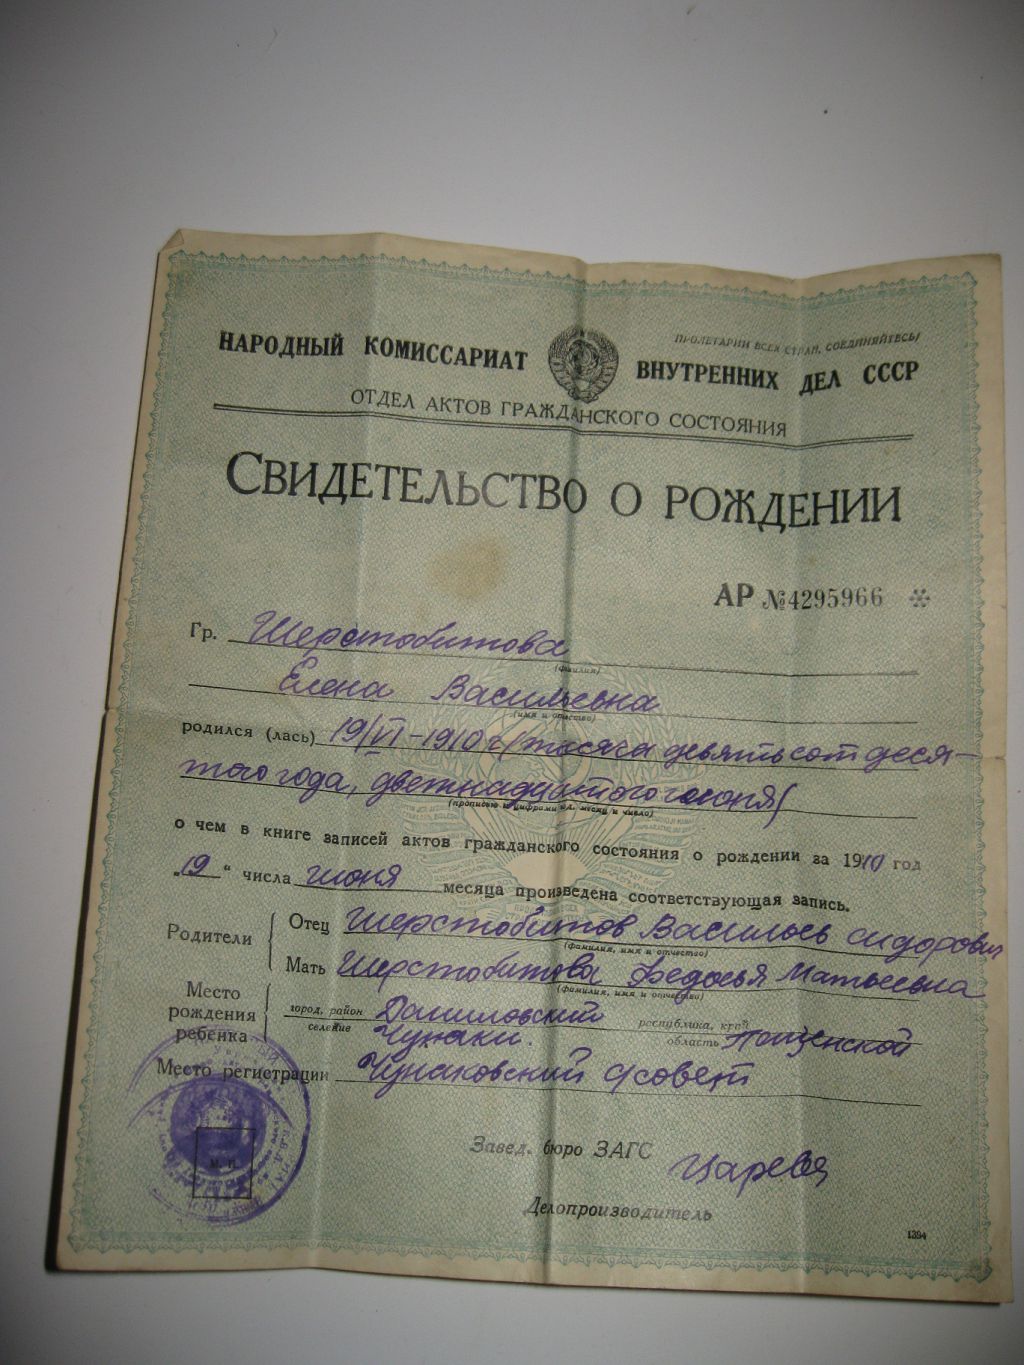 ПРОЛЕТАРИИ ВСЕХ СТРАН, СОЕДИНЯЙТЕСЬ!
НАРОДНЫЙ КОМИССАРИАТ ВНУТРЕННИХ ДЕЛ СССР
ОТДЕЛ АКТОВ ГРАЖДАНСКОГО СОСТОЯНИЯ
СВИДЕТЕЛЬСТВО О РОЖДЕНИИ
АР №4295966
Гр. Шерстобитова
(фамилия)
Елена Васильевна
(имя и отчество)
родился (лась) 19/VI-1910 г/тысяча девятьсот деся-
того года,
(прописью и цифрами год, месяц и число)
о чем в книге записей актов гражданского состояния о рождении за 1910 год
„19" числа июня месяца произведена соответствующая запись.
Родители
Отец Шерстобитов Васильев сидорович
(фамилия, имя и отчество)
Мать Шерстобитова Федосья Матвеевна
(фамилия, имя и отчество)
Место рождения ребенка
город, район Даниловский республика, край
селение Чунаки. область
Место регистрации Чунаковский с/совет
М. П.
Завед. бюро ЗАГС
Делопроизводитель
1394